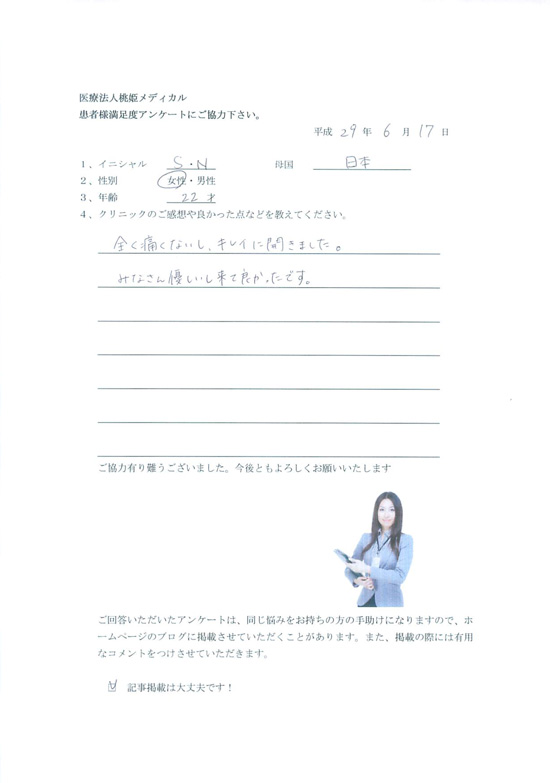 医療法人桃姫メディカル
患者様満足度アンケートにご協力下さい。
平成 29 年 6 月 17 日
1、イニシャル S・N 母国 日本
2、性別 女性・男性
3、年齢 22 才
4、クリニックのご感想や良かった点などを教えてください。
全く痛くないし、キレイに開きました。
みなさん優しいし来て良かったです。
ご協力有り難うございました。今後ともよろしくお願いいたします
ご回答いただいたアンケートは、同じ悩みをお持ちの方の手助けになりますので、ホ
ームページのブログに掲載させていただくことがあります。また、掲載の際には有用
なコメントをつけさせていただきます。
☑ 記事掲載は大丈夫です！